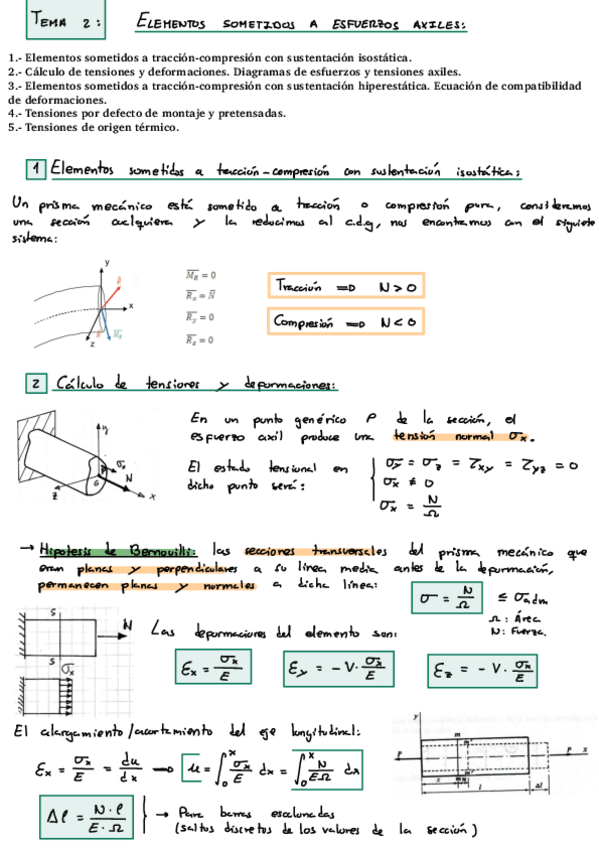 TEMA 2: ELEMENTOS SOMETIDOS A ESFUERZOS AXILES:
1.- Elementos sometidos a tracción-compresión con sustentación isostática.
2.- Cálculo de tensiones y deformaciones. Diagramas de esfuerzos y tensiones axiles.
3.- Elementos sometidos a tracción-compresión con sustentación hiperestática. Ecuación de compatibilidad
de deformaciones.
4.- Tensiones por defecto de montaje y pretensadas.
5.- Tensiones de origen térmico.
1 Elementos sometidos a tracción-compresión con sustentación isostática:
Un prisma mecánico está sometido a tracción o compresión pura, consideramos
una sección cualquiera y la reducimos al c.d.g, nos encontramos con el siguiente
sistema:
y
R
x
z
M_R
M_R = 0
R_x = N
R_y = 0
R_z = 0
Tracción => N > 0
Compresión => N < 0
2 Cálculo de tensiones y deformaciones:
y
P
σx
G
N
z
x
En un punto genérico P de la sección, el
esfuerzo axil produce una tensión normal σx.
El estado tensional en
dicho punto será:
σy = σz = τxy = τyz = 0
σx ≠ 0
σx = N/Ω
→ Hipotesis de Bernouilli: las secciones transversales del prisma mecánico que
eran planas y perpendiculares a su línea media antes de la deformación,
permanecen planas y normales a dicha línea:
σ = N/Ω ≤ σadm
Ω: Área
N: Fuerza.
S
N
S
σx
Las deformaciones del elemento son:
εx = σx/E
εy = - ν · σx/E
εz = - ν · σx/E
El alargamiento/acortamiento del eje longitudinal:
εx = σx/E = du/dx → u = ∫₀ˣ σx/E dx = ∫₀ˣ N/EΩ dx
y
m
P
P
x
l
Δl
Δl = N·l/E·Ω
→ Para barras escalonadas
(saltos discretos de los valores de la sección)